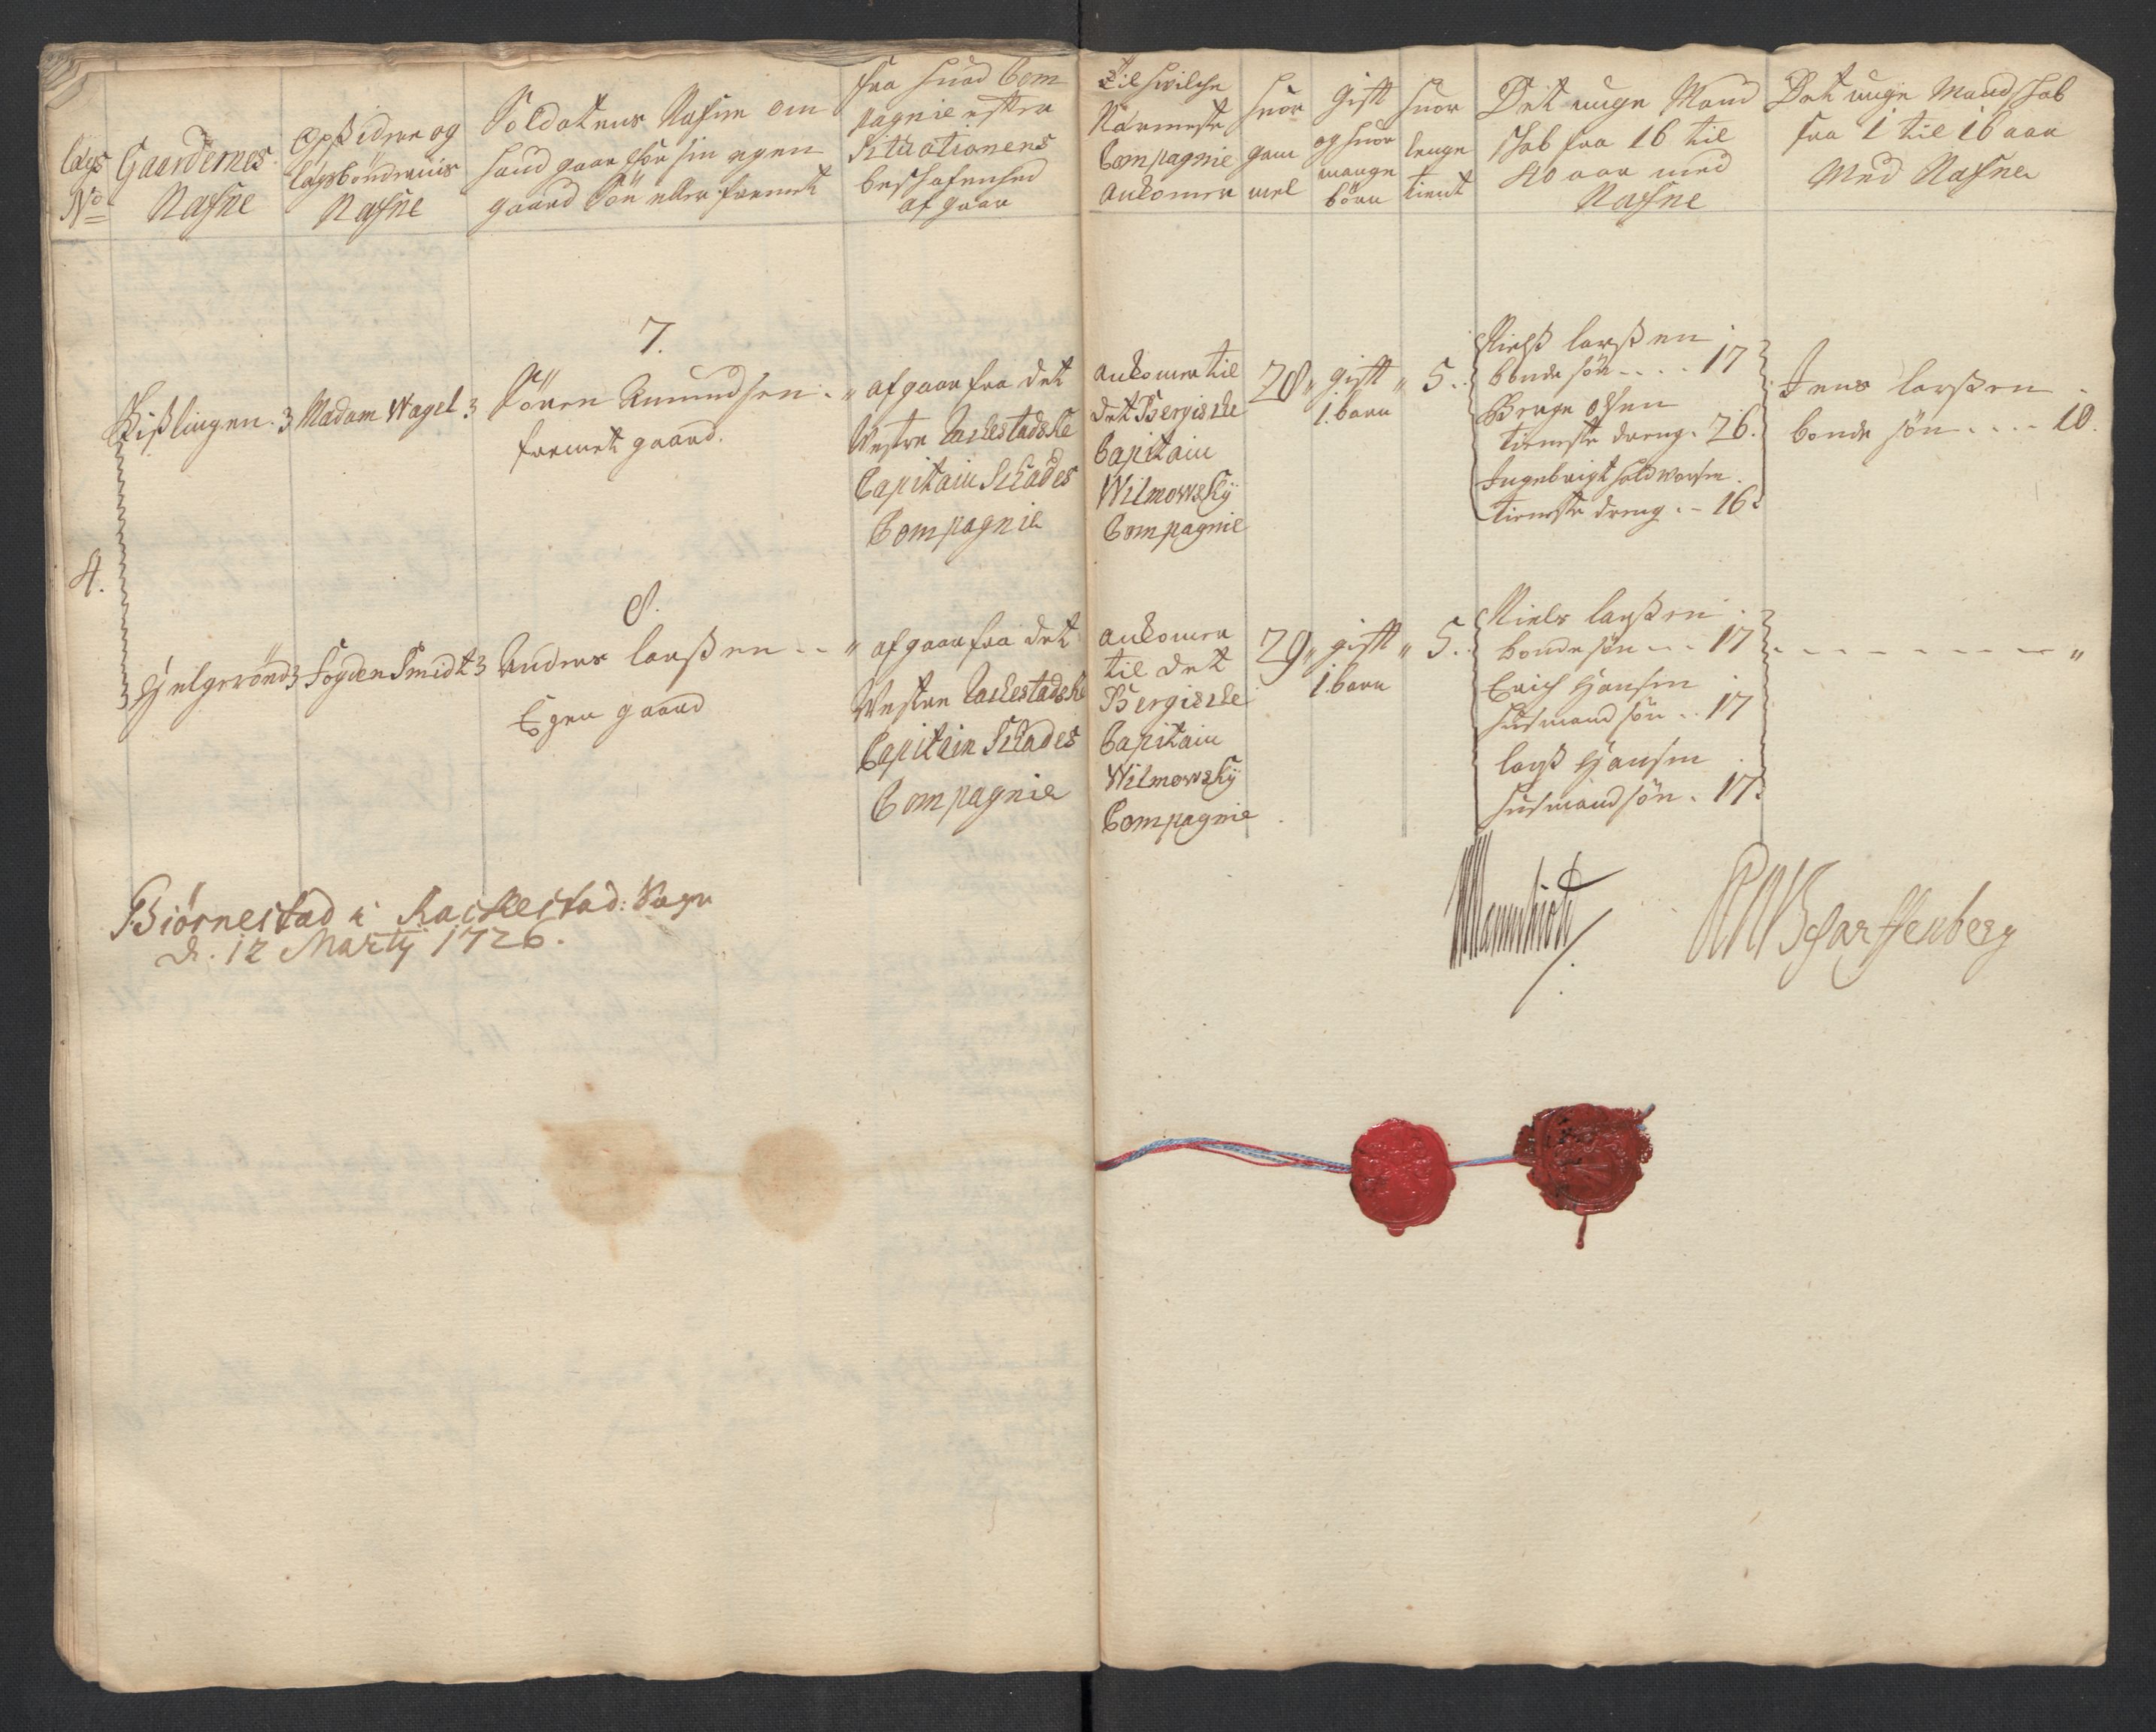 Lægs
No
Gaardernes
Nafne
Opsidere og
Lægsbönderniis
Nafne
Soldatens Nafne om
hand gaar for sin egen
gaard Sön eller fremet
fra huad Com
pagnie efter
Situationens
beskafenhed
afgaar
Til hvilche
Nærmeste
Compagnie
ankomer
huor
gam
mel
Gift
og huor
mange
börn
huor
lenge
tient
Det unge Mand
skab fra 16 til
40 aar med
Nafne
Det unge Mandskab
fra 1 til 16 aar
Med Nafne
4.
7.
Kißlingen. 3
Madam Wagel 3
Sören Amundsen
fremet gaard.
" afgaar fra det
Westre Rackestadske
Capitain Schades
Compagnie
ankomer til
det Bergische
Capitain
Wilmowskÿ
Compagnie
28 "
gift "
1. barn
5.
Nielß Larßen
bonde sön 17
Brage Olsen
tieneste dreng. 26.
Ingebrigt Haldworsen
tieneste dreng. 16.
Jens Larßen
bonde sön 10.
8.
Hielgerönd 3
Fogden Smidt 3
Anders Larßen
Egen gaard
" afgaar fra det
Westre Rackestadske
Capitain Schades
Compagnie
ankomer
til det
Bergische
Capitain
Wilmowskÿ
Compagnie
29 "
gift "
1. barn
5.
Niels Larßen
bonde sön 17
Erich Hansen
husmand sön 17
Larß Hansen
husmand sön. 17.
"
Biörnestad i Rackestad: Sogn
d. 12 Martÿ 1726.
Scharffenberg